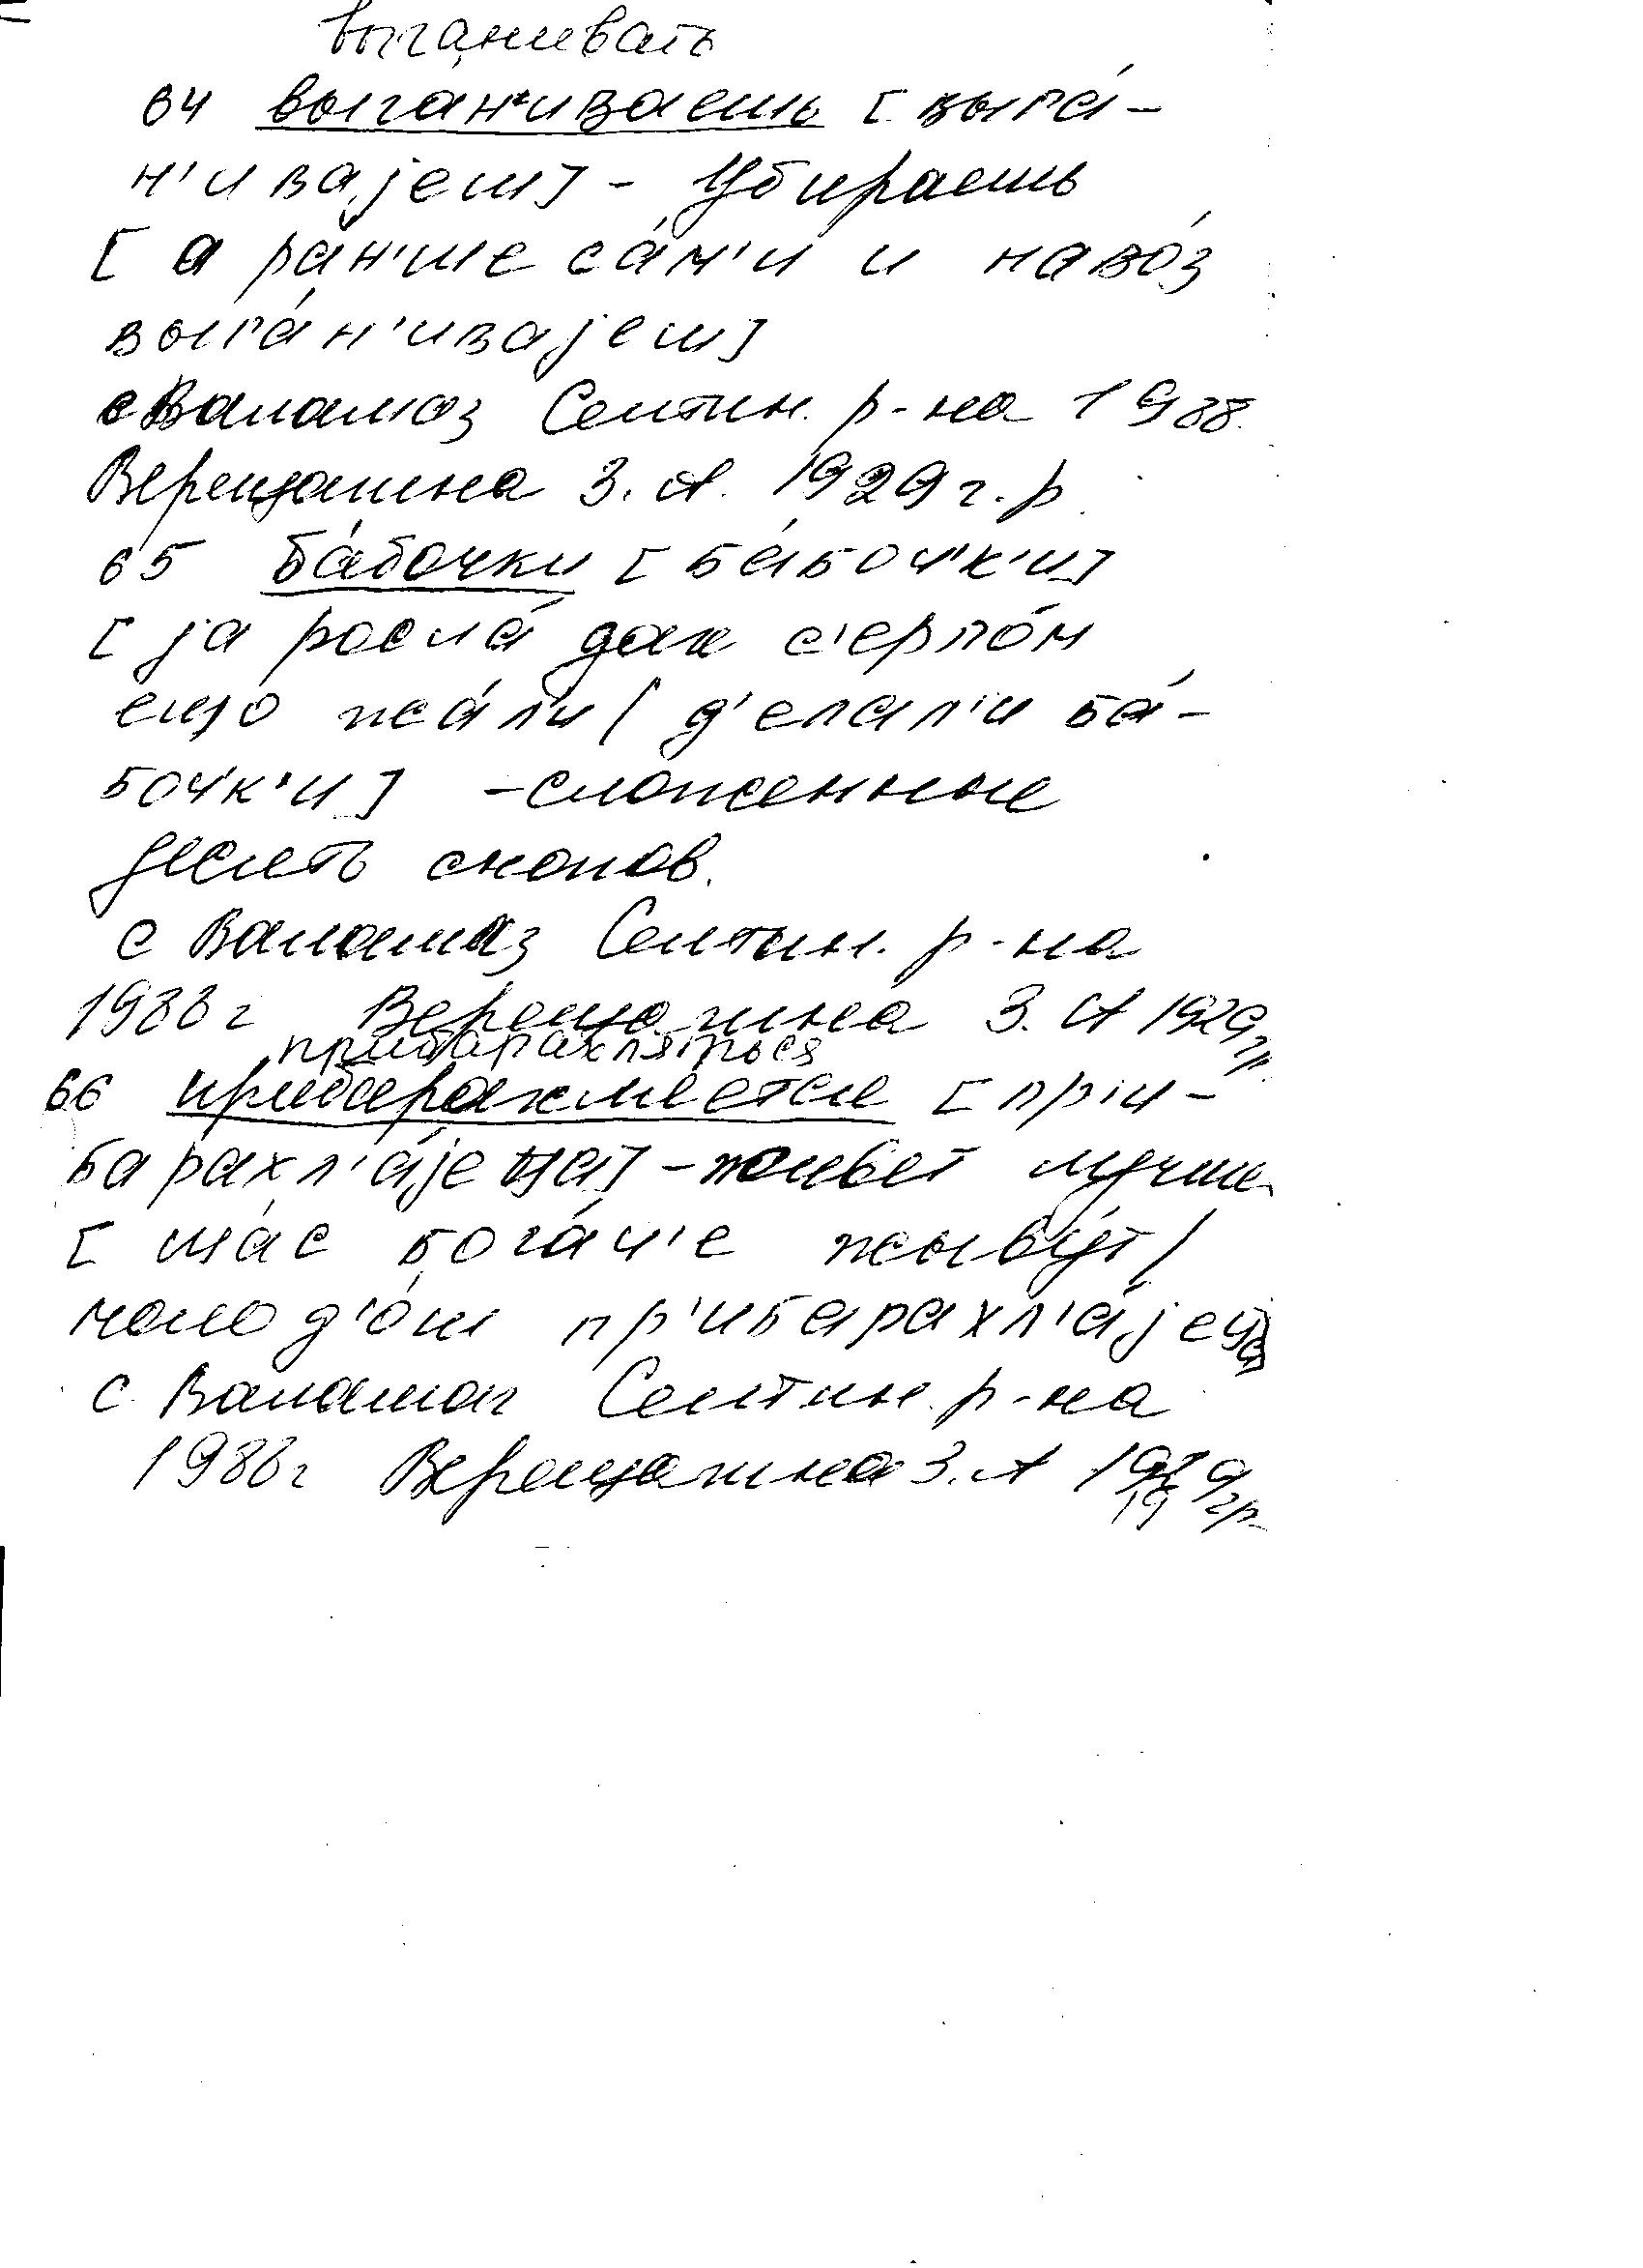 выганивать
64 выган'иваешь [выга́-
н'ивајеш] - Убираешь
[а ра́н'ше са́м'и и наво́з
выга́н'ивајеш]
с Валамаз Селтин. р-на 1988.
Верещагина З. А. 1929 г. р.
65 ба́бочки [ба́боч'к'и]
[ја росла́ дак с'ерпо́м
ещо жа́л'и / д'елал'и ба́-
боч'к'и] - сложенные
десять снопов.
с Валамаз Селтин. р-на
1988 г Верещагина З. А 1929 гр.
прибарахляться
66 прибарахляется [пр'и-
барахл'а́јеца] - живет лучше
[ща́с бога́ч'е жыву́т /
молод'о́ш пр'ибарахл'а́јеца]
с. Валамаз Селтин. р-на
1988 г Верещагина З. А 1929 гр
19